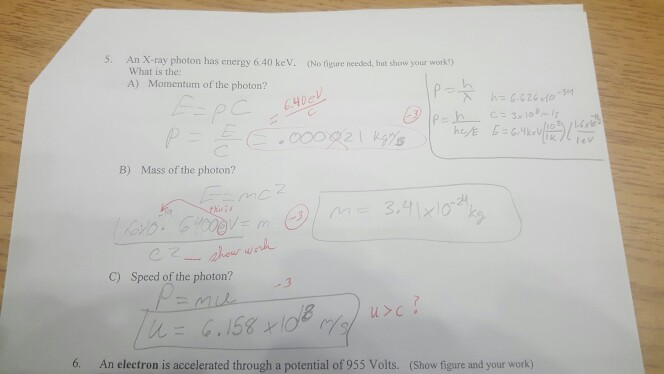 5. An X-ray photon has energy 6.40 keV. (No figure needed, but show your work!)
What is the:
A) Momentum of the photon?
E = pC = 6.40eV / c
P = E / C = .000021 kg m/s
-3
P = h / λ h = 6.626x10^-34
P = h / hc/E C = 3x10^8 m/s
E = 6.4keV (10^3 / 1K) / 1eV
B) Mass of the photon?
E = mc²
this is
6400eV = m
C²
show work
-3
m = 3.41x10^-24 kg
C) Speed of the photon?
-3
P = mu
u = 6.158 x10^18 m/s
u>c?
6. An electron is accelerated through a potential of 955 Volts. (Show figure and your work)